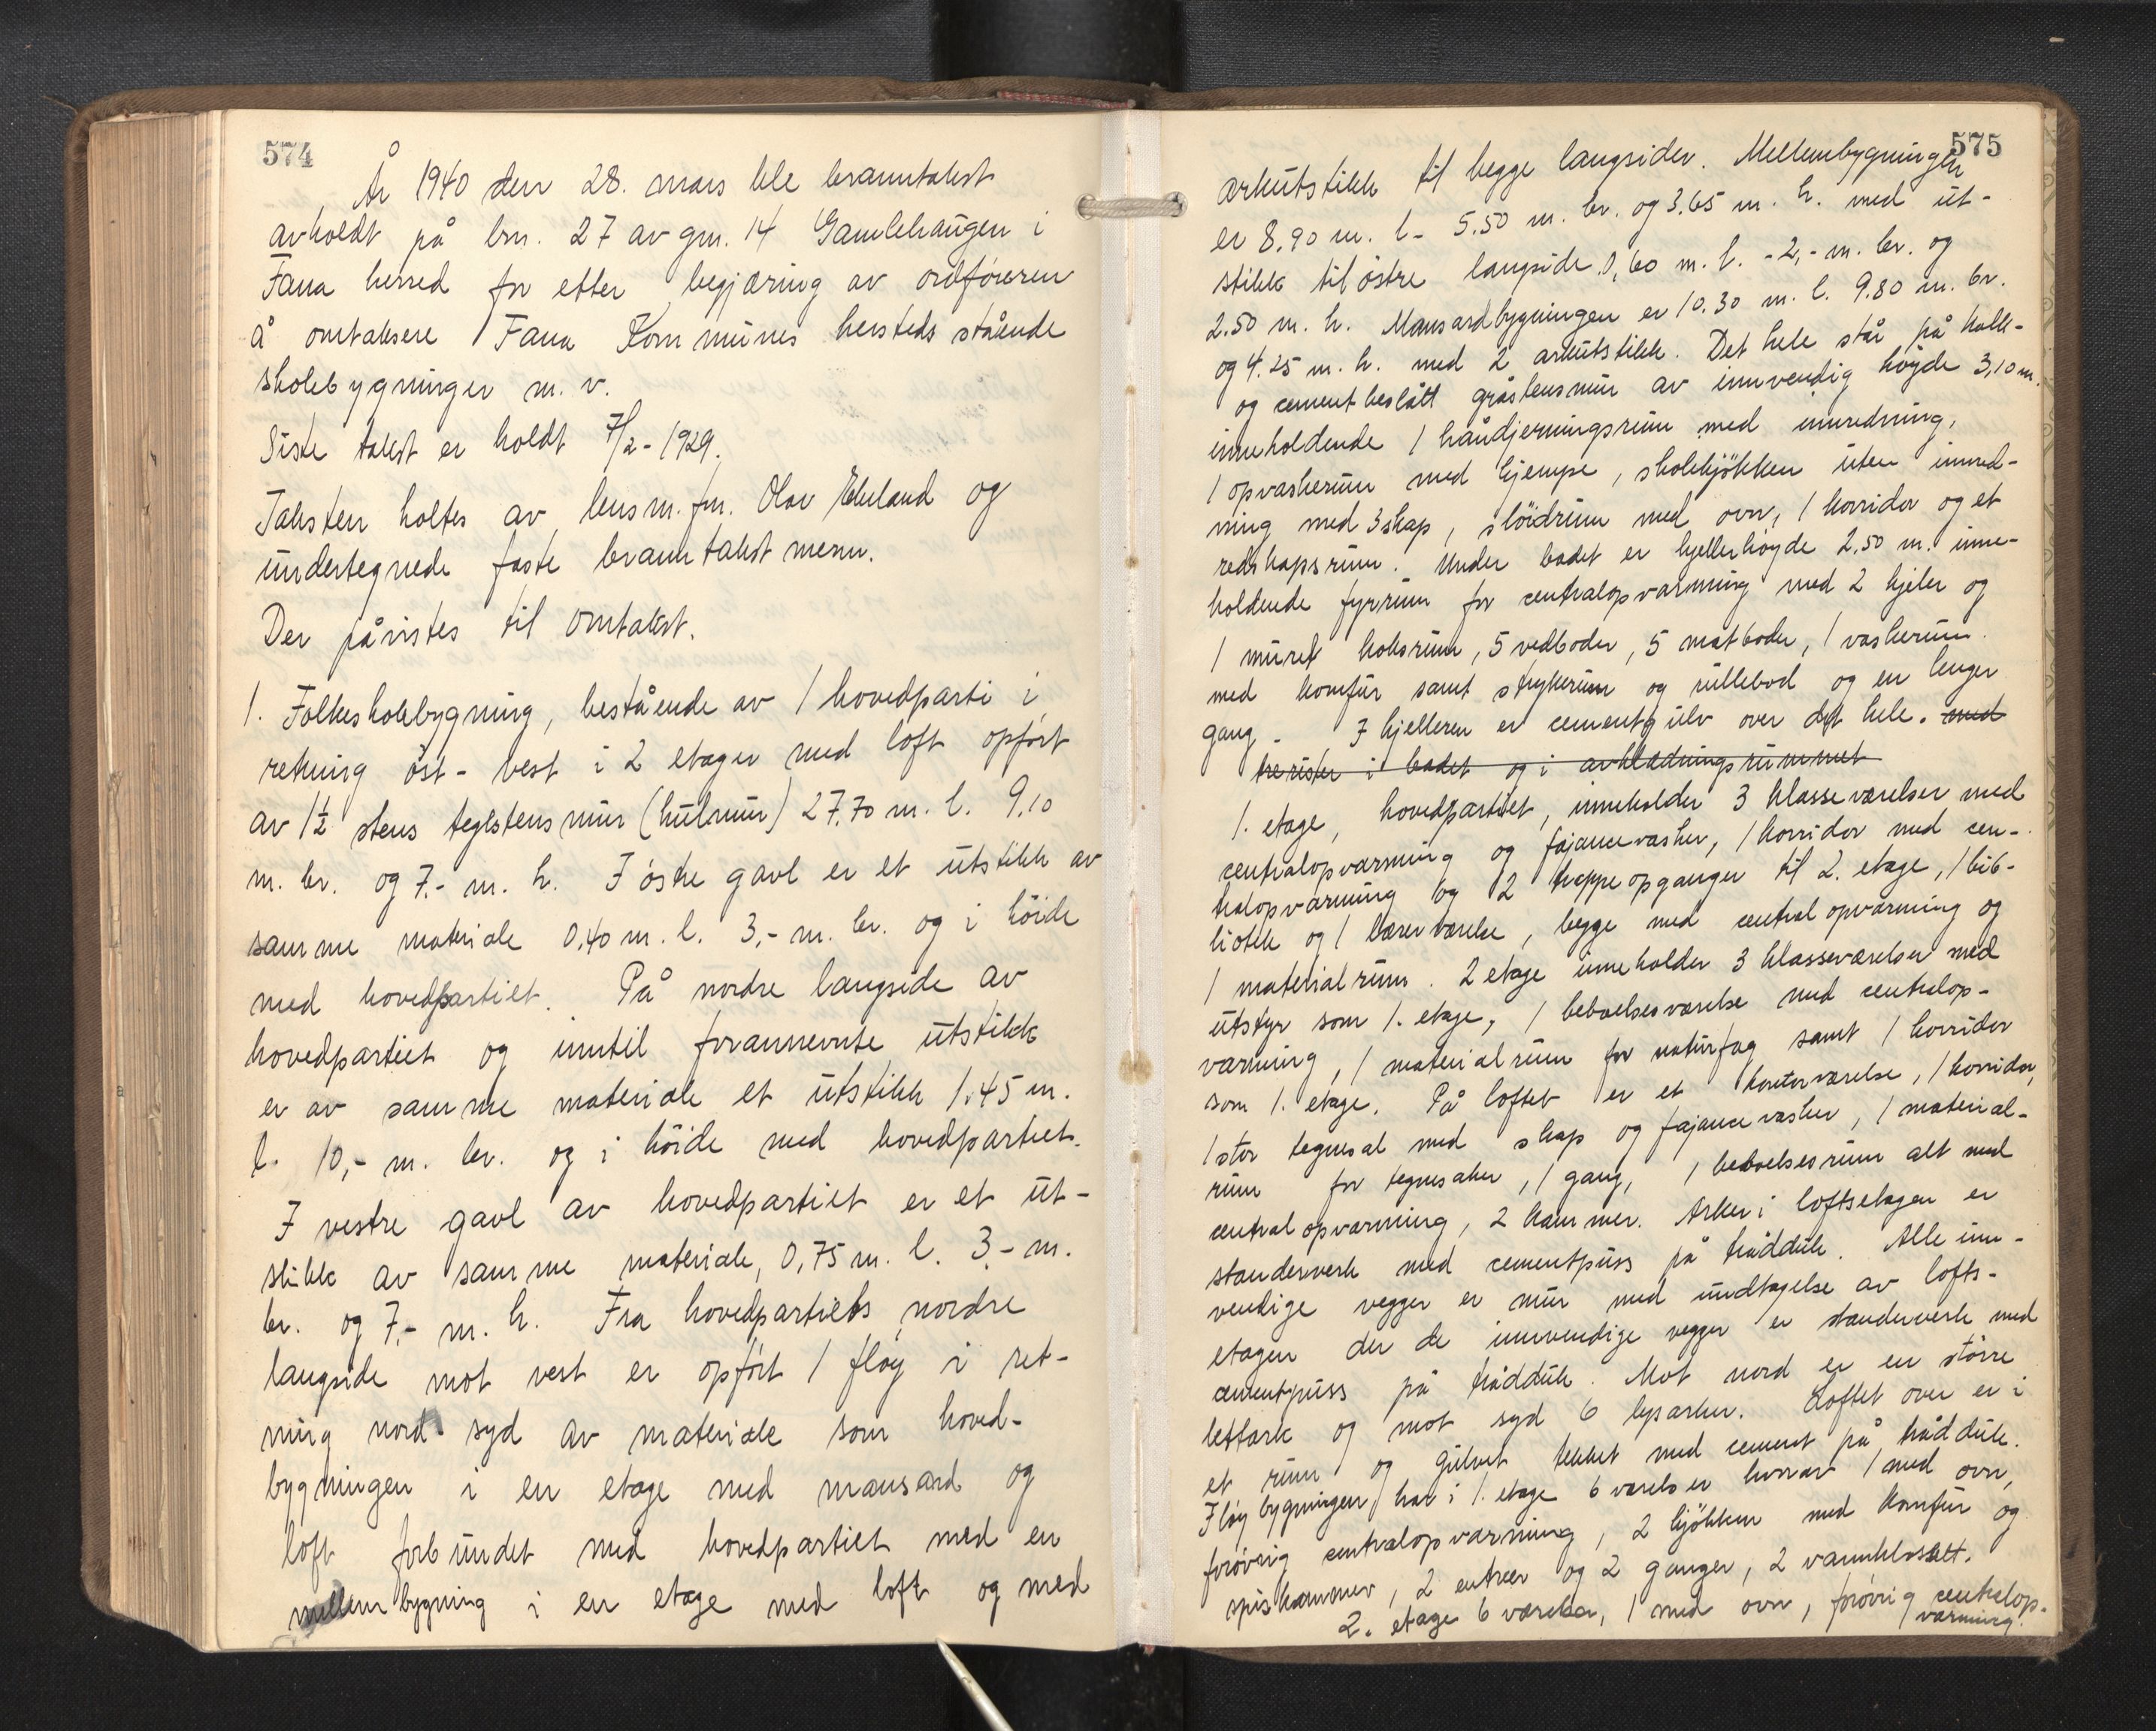 574
År 1940 den 28. mars ble branntakst
avholdt på brn. 27 av grn. 14 Gamlehaugen i
Fana herred for efter begjæring av ordføreren
å omtaksere Fana Kommunes hersteds stående
skolebygninger m. v.
Siste takst er holdt 7/2 - 1929.
Taksten holtes av lensm. fm. Olav Ekeland og
undertegnede faste branntakstmenn.
Der påvistes til omtakst.
1. Folkeskolebygning, bestående av 1 hovedparti i
retning öst - vest i 2 etager med loft opfört
av 1½ stens teglstensmur (hulmur) 27,70 m. l. 9,10
m. br. og 7.- m. h. I östre gavl er et utstikk av
samme materiale 0,40 m. l. 3,- m. br. og i höide
med hovedpartiet. På nordre langside av
hovedpartiet og inntil forannevnte utstikk
er av samme materiale et utstikk 1.45 m.
l. 10,- m. br. og i höide med hovedpartiet.
I vestre gavl av hovedpartiet er et ut-
stikk av samme materiale, 0,75 m. l. 3,- m.
br. og 7,- m. h. Fra hovedpartiets nordre
langside mot vest er opfört 1 flöy i ret-
ning nord syd av materiale som hoved-
bygningen i en etage med mansard og
loft forbundet med hovedpartiet med en
mellembygning i en etage med loft og med
575
arkutstikk til begge langsider. Mellembygningen
er 8.90 m. l - 5.50 m. br. og 3.65 m. h. med ut-
stikk til östre langside 0,60 m. l. - 2,- m. br. og
2.50 m. h. Mansardbygningen er 10.30 m. l. 9.80 m. br.
og 4.25 m. h. med 2 arkutstikk. Det hele står på kalk-
og cementbeslått gråstensmur av innvendig höyde 3,10 m.
inneholdende 1 håndgjerningsrum med innredning,
1 opvaskerum med kjempe, skolekjökken uten innred-
ning med 3 skap, slöidrum med ovn, 1 korridor og et
redskapsrum. Under badet er kjellerhöyde 2.50 m. inne-
holdende fyrrum for centralopvarming med 2 kjeler og
1 muret koksrum, 5 vedboder, 5 matboder, 1 vaskerum
med komfur samt strykerum og rullebod og en lenger
gang. I kjelleren er cementgulv over det hele. med
trerister i badet og i avklædningsrummet
1. etage, hovedpartiet, inneholder 3 klasseværelser med
centralopvarming og fajancevasker, 1 korridor med cen-
tralopvarming og 2 trappeopganger til 2. etage, 1 bib-
liotek og 1 lærerværelse, begge med centralopvarming og
1 materialrum. 2 etage inneholder 3 klasseværelser med
utstyr som 1. etage, 1 beboelsesværelse med centralop-
varming, 1 materialrum for naturfag samt 1 korridor
som 1. etage. På loftet er et kontorværelse, 1 korridor,
1 stor tegnesal med skap og fajancevasker, 1 material-
rum for tegnesaker, 1 gang, 1 beboelsesrum alt med
centralopvarming, 2 kammer. Arker i loftsetagen er
standerverk med cementpuss på trådduk. Alle inn-
vendige vegger er mur med undtagelse av lofts-
etagen der de innvendige vegger er standerverk med
cementpuss på trådduk. Mot nord er en större
lettark og mot syd 6 lysarker. Loftet over er i
et rum og gulvet tekket med cement på trådduk.
Flöybygningen har i 1. etage 6 værelser hvorav 1 med ovn,
forövrig centralopvarming, 2 kjökken med komfur og
spiskammer, 2 entreer og 2 ganger, 2 vannklosett.
2. etage 6 værelser, 1 med ovn, forövrig centralop-
varming.